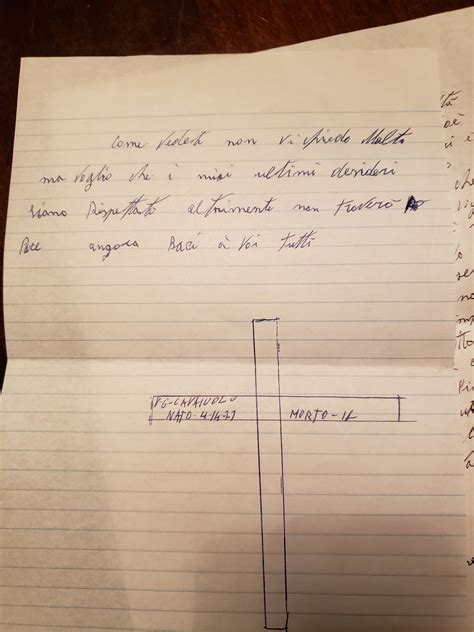 Come vedeste non vi chiedo Molto
ma voglio che i miei ultimi desideri
siano Rispettato altrimente non troverò
Pace angora Baci à Voi tutti
FG-CAVAIUOLO
NATO-4-14-21 MORTO-IL